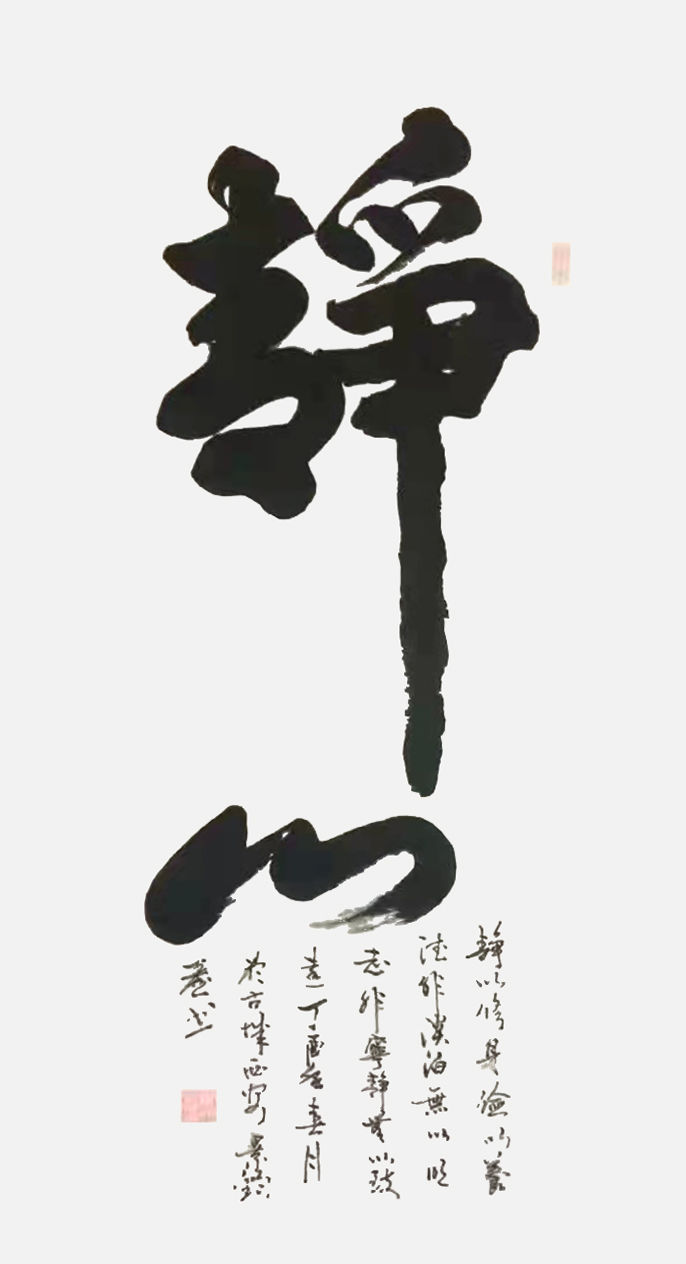 靜心
靜以修身儉以養
德非澹泊無以明
志非寧靜無以致
遠丁酉年春月
於古城西安景
書